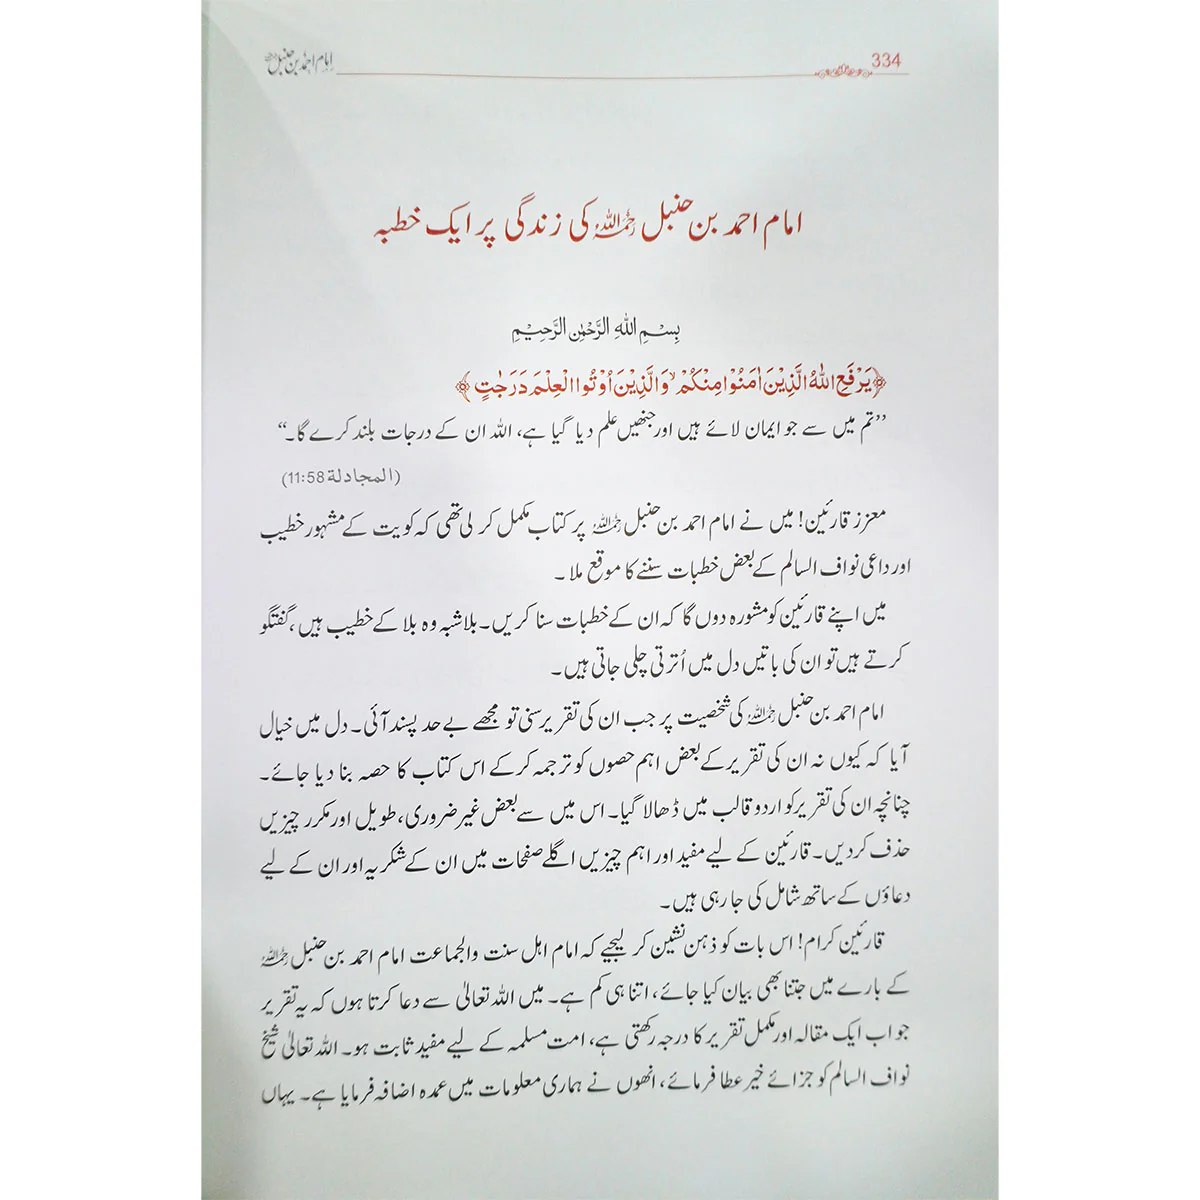 334
امام احمد بن حنبل
امام احمد بن حنبل رحمہ اللہ کی زندگی پر ایک خطبہ
بِسْمِ اللهِ الرَّحْمٰنِ الرَّحِيْمِ
﴿يَرْفَعِ اللّٰهُ الَّذِيْنَ اٰمَنُوْا مِنْكُمْ ۙ وَالَّذِيْنَ اُوْتُوا الْعِلْمَ دَرَجٰتٍ﴾
”تم میں سے جو ایمان لائے ہیں اور جنھیں علم دیا گیا ہے، اللہ ان کے درجات بلند کرے گا۔“
(المجادلة 11:58)
معزز قارئین! میں نے امام احمد بن حنبل رحمہ اللہ پر کتاب مکمل کر لی تھی کہ کویت کے مشہور خطیب
اور داعی نواف السالم کے بعض خطبات سننے کا موقع ملا۔
میں اپنے قارئین کو مشورہ دوں گا کہ ان کے خطبات سنا کریں۔ بلاشبہ وہ بلا کے خطیب ہیں، گفتگو
کرتے ہیں تو ان کی باتیں دل میں اُترتی چلی جاتی ہیں۔
امام احمد بن حنبل رحمہ اللہ کی شخصیت پر جب ان کی تقریر سنی تو مجھے بے حد پسند آئی۔ دل میں خیال
آیا کہ کیوں نہ ان کی تقریر کے بعض اہم حصوں کو ترجمہ کر کے اس کتاب کا حصہ بنا دیا جائے۔
چنانچہ ان کی تقریر کو اردو قالب میں ڈھالا گیا۔ اس میں سے بعض غیر ضروری، طویل اور مکرر چیزیں
حذف کر دیں۔ قارئین کے لیے مفید اور اہم چیزیں اگلے صفحات میں ان کے شکریہ اور ان کے لیے
دعاؤں کے ساتھ شامل کی جا رہی ہیں۔
قارئین کرام! اس بات کو ذہن نشین کر لیجیے کہ امام اہل سنت والجماعت امام احمد بن حنبل رحمہ اللہ
کے بارے میں جتنا بھی بیان کیا جائے، اتنا ہی کم ہے۔ میں اللہ تعالیٰ سے دعا کرتا ہوں کہ یہ تقریر
جو اب ایک مقالہ اور مکمل تقریر کا درجہ رکھتی ہے، امت مسلمہ کے لیے مفید ثابت ہو۔ اللہ تعالیٰ شیخ
نواف السالم کو جزائے خیر عطا فرمائے، انھوں نے ہماری معلومات میں عمدہ اضافہ فرمایا ہے۔ یہاں